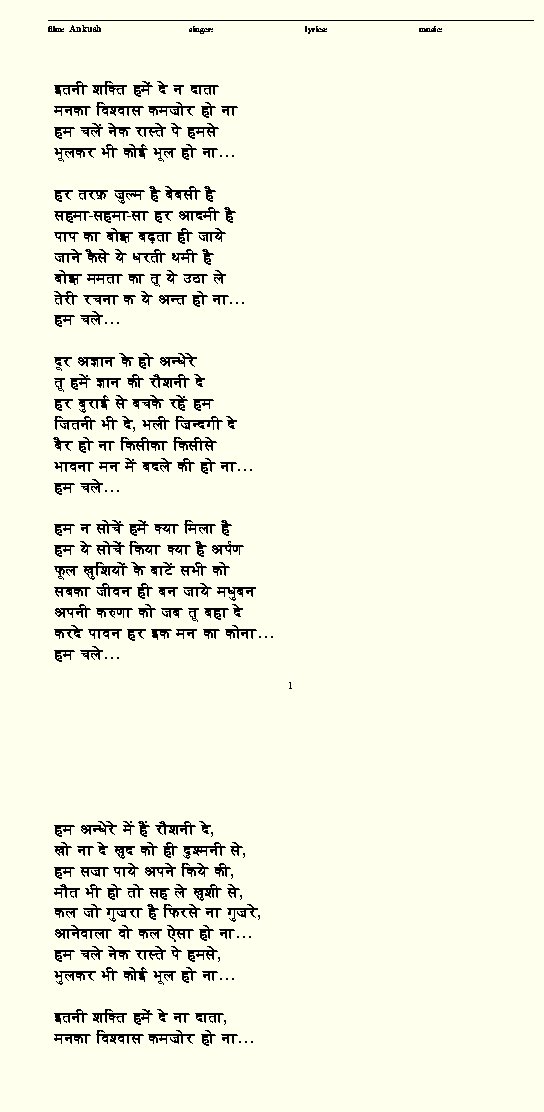 film: Ankush singer: lyrics: music:
इतनी शक्ति हमें दे न दाता
मनका विश्वास कमजोर हो ना
हम चलें नेक रास्ते पे हमसे
भूलकर भी कोई भूल हो ना...
हर तरफ़ ज़ुल्म है बेबसी है
सहमा-सहमा-सा हर आदमी है
पाप का बोझ बढ़ता ही जाये
जाने कैसे ये धरती थमी है
बोझ ममता का तू ये उठा ले
तेरी रचना क ये अन्त हो ना...
हम चले...
दूर अज्ञान के हो अन्धेरे
तू हमें ज्ञान की रौशनी दे
हर बुराई से बचके रहें हम
जितनी भी दे, भली ज़िन्दगी दे
बैर हो ना किसीका किसीसे
भावना मन में बदले की हो ना...
हम चले...
हम न सोचें हमें क्या मिला है
हम ये सोचें किया क्या है अर्पण
फूल खुशियों के बाटें सभी को
सबका जीवन ही बन जाये मधुबन
अपनी करुणा को जब तू बहा दे
करदे पावन हर इक मन का कोना...
हम चले...
1
हम अन्धेरे में हैं रौशनी दे,
खो ना दे खुद को ही दुश्मनी से,
हम सज़ा पाये अपने किये की,
मौत भी हो तो सह ले खुशी से,
कल जो गुज़रा है फिरसे ना गुज़रे,
आनेवाला वो कल ऐसा हो ना...
हम चले नेक रास्ते पे हमसे,
भुलकर भी कोई भूल हो ना...
इतनी शक्ति हमें दे ना दाता,
मनका विश्वास कमजोर हो ना...